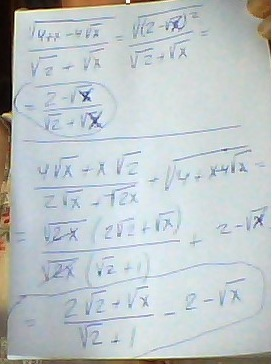 √(4+x-4√x) / (√2 + √x) = √((2-√x)²) / (√2 + √x) =
= (2-√x) / (√2 + √x)
(4√x + x√2) / (2√x + √2x) + √(4+x4√x) =
= √2x (2√2 + √x) / √2x (√2 + 1) + 2-√x
= (2√2 + √x) / (√2 + 1) - 2-√x